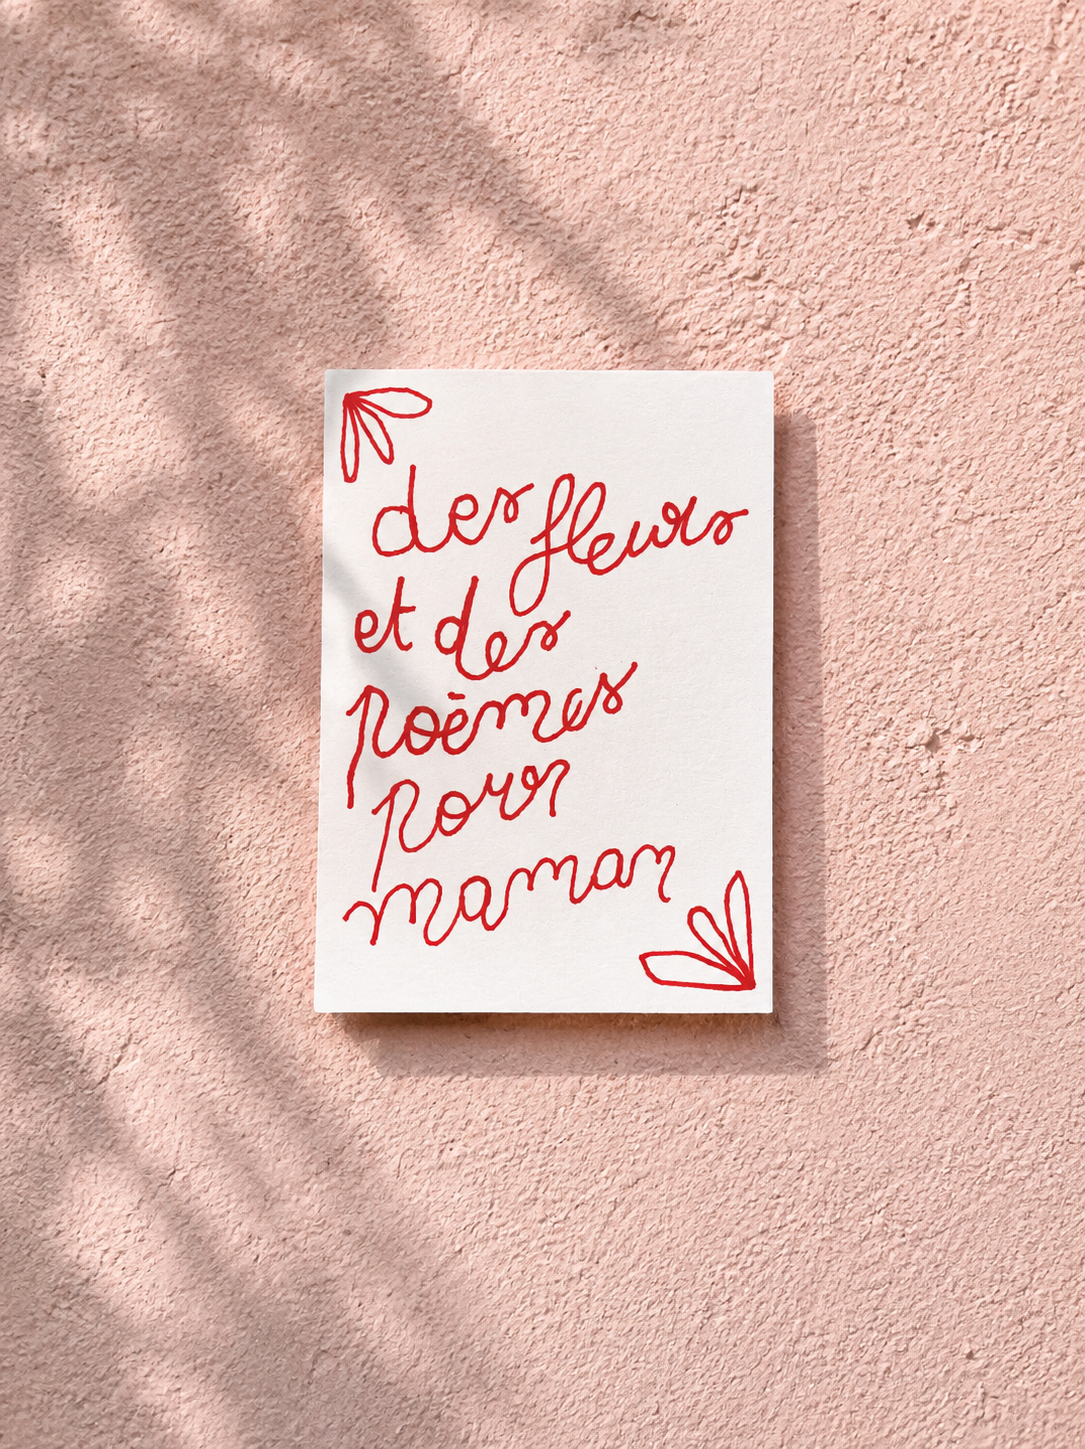 des fleurs
et des
poèmes
pour
maman